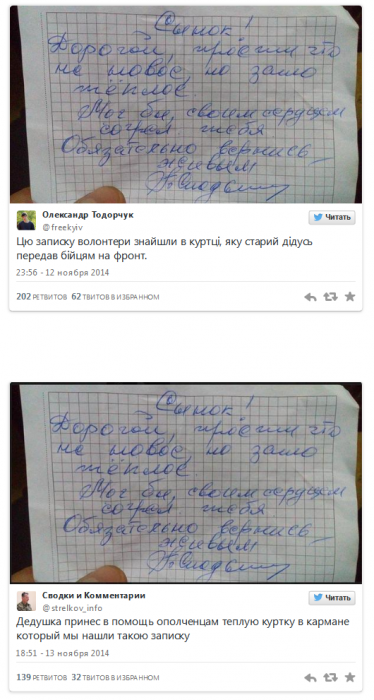 Сынок!
Дорогой, прости что
не новое, но зато
тёплое.
Мог бы, своим сердцем
согрел тебя
Обязательно вернись
живым
Олександр Тодорчук
@freekyiv
Читать
Цю записку волонтери знайшли в куртці, яку старий дідусь
передав бійцям на фронт.
23:56 - 12 ноября 2014
202 РЕТВИТОВ 62 ТВИТОВ В ИЗБРАННОМ
Сынок!
Дорогой, прости что
не новое, но зато
тёплое.
Мог бы, своим сердцем
согрел тебя
Обязательно вернись
живым
Сводки и Комментарии
@strelkov_info
Читать
Дедушка принес в помощь ополченцам теплую куртку в кармане
который мы нашли такую записку
18:51 - 13 ноября 2014
139 РЕТВИТОВ 32 ТВИТОВ В ИЗБРАННОМ